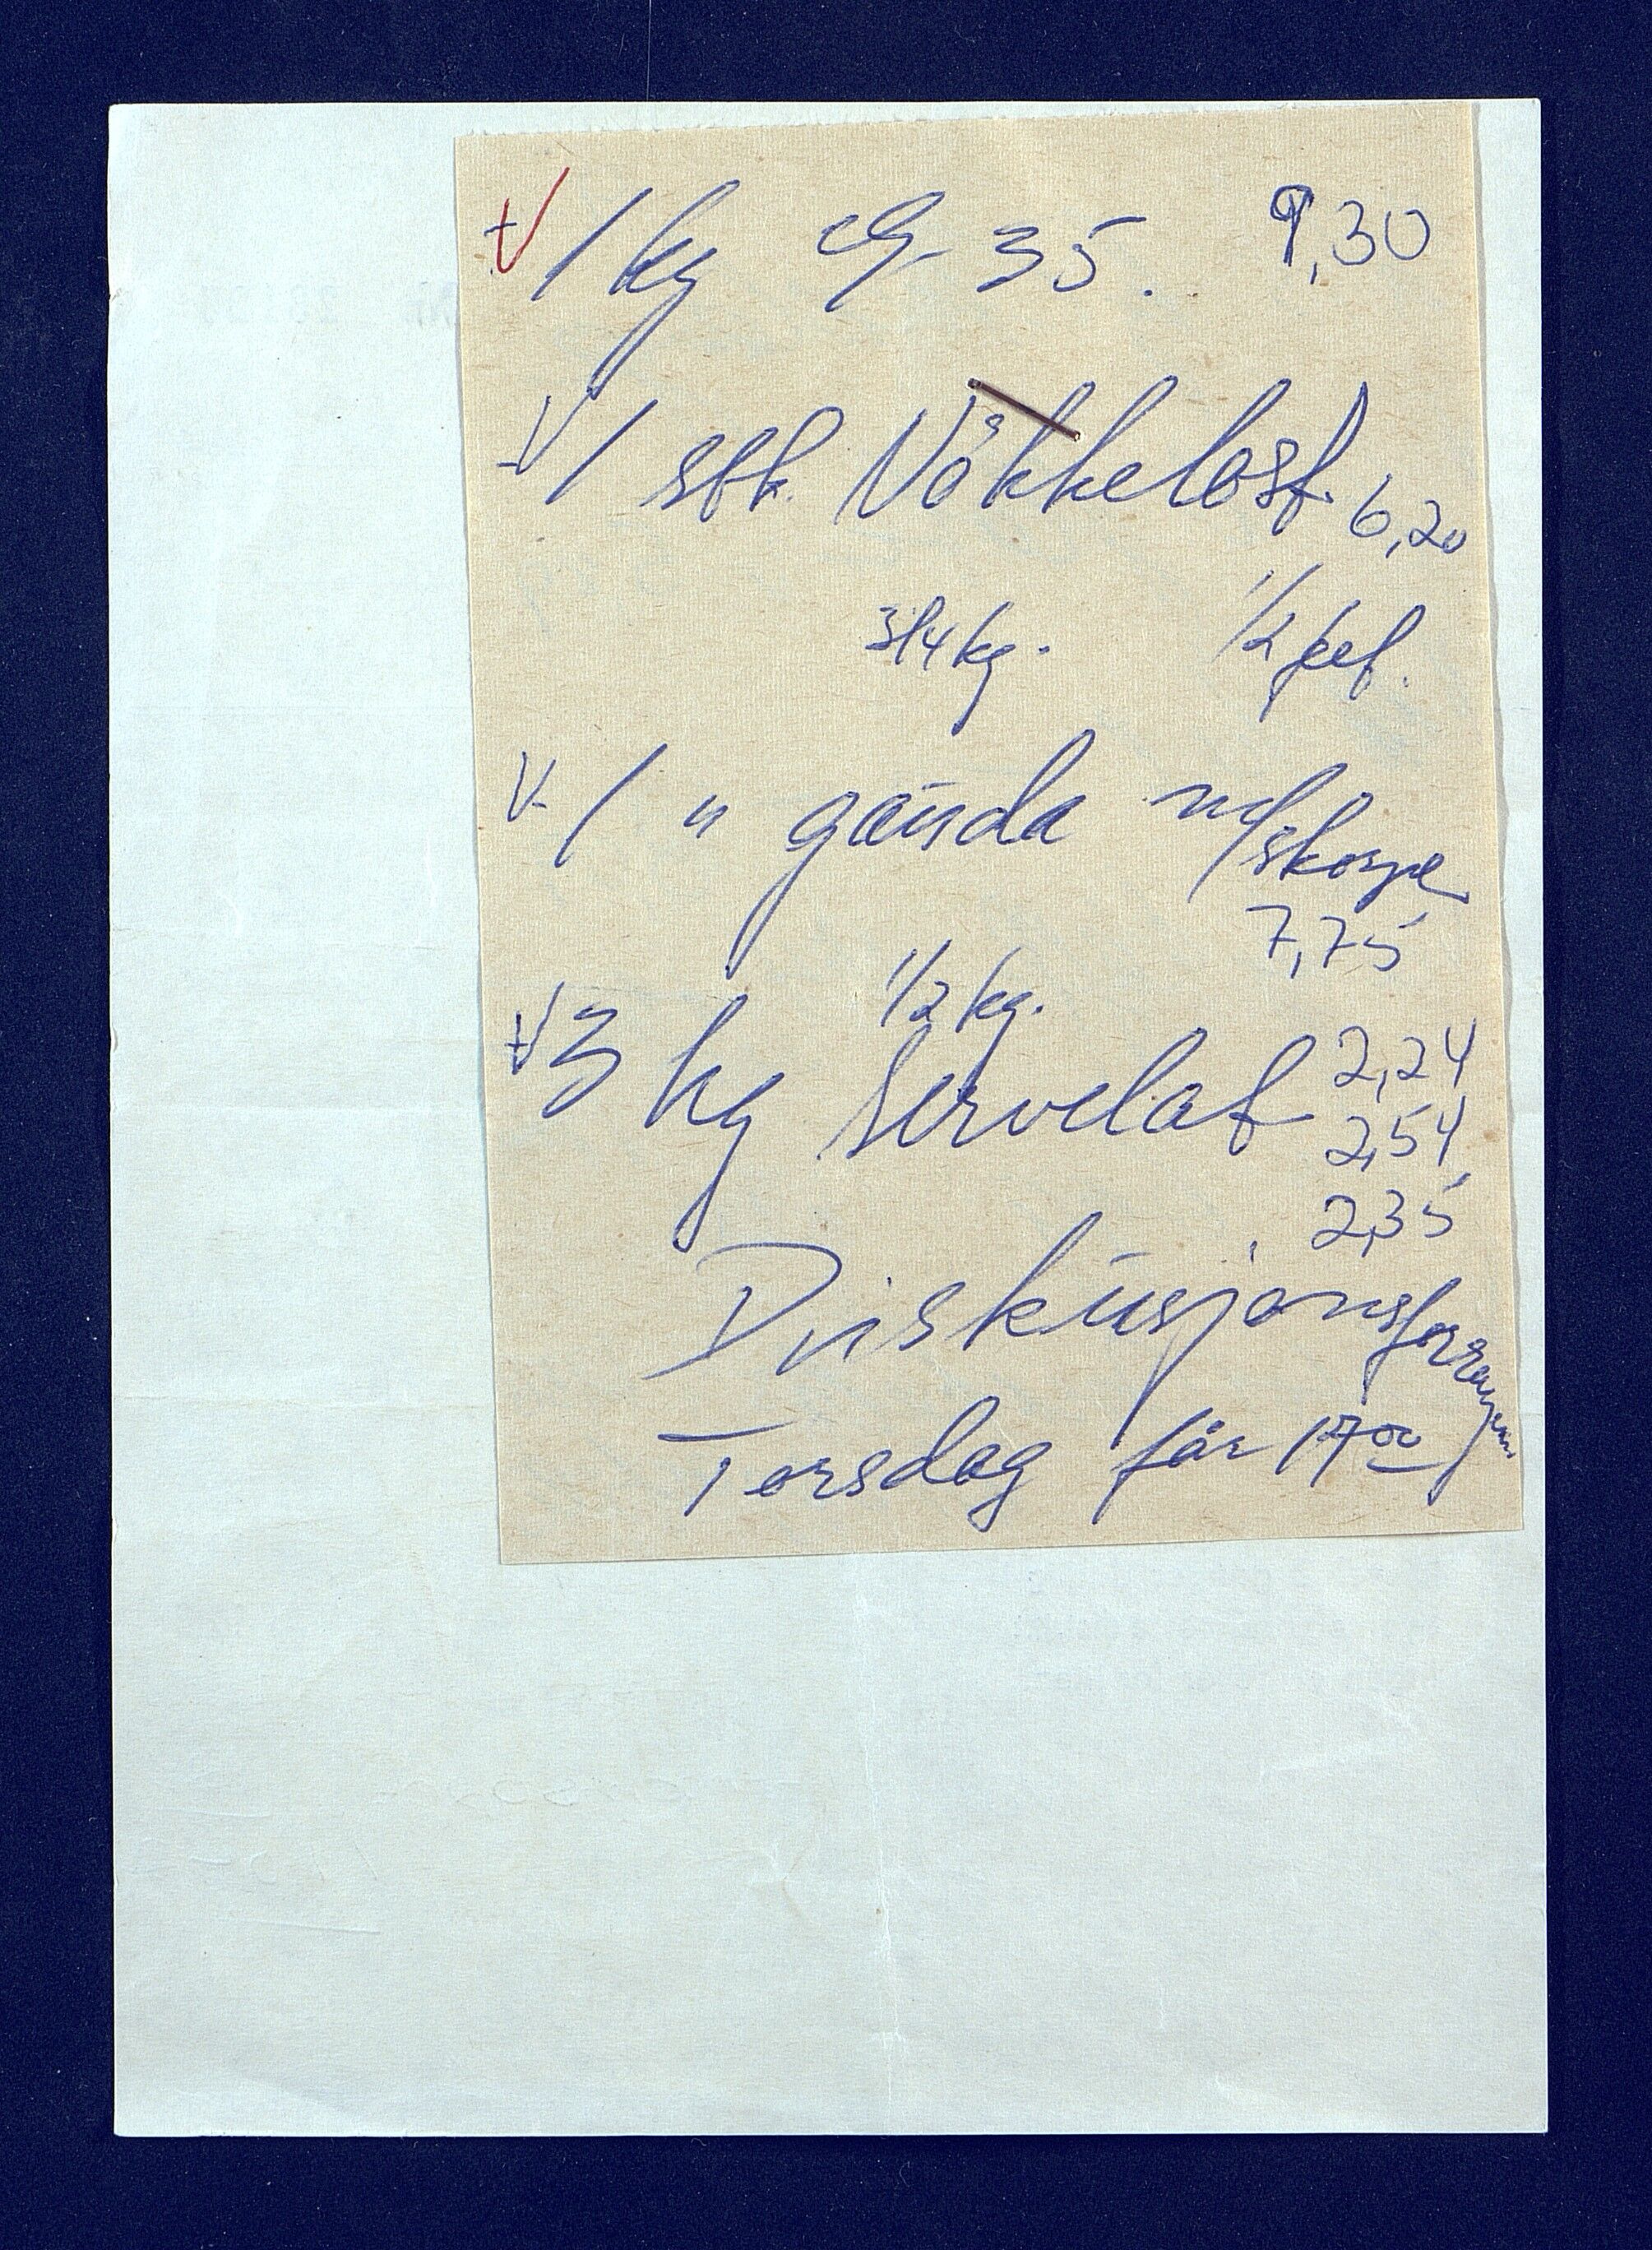 1 kg G 35. 9,30
1 stk. Nökkelost. 6,20
3/4 kg. 1/2 fet.
1 " gauda m/skorpe
7,75
1/2 kg.
3 kg Servelat 2,24
2,54
2,35
Diskusjons
Torsdag før 17 00